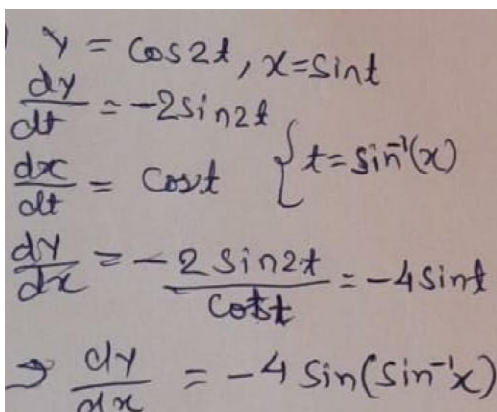 ) y = cos2t, x=sint
dy/dt = -2sin2t
dx/dt = cost { t=sin⁻¹(x)
dy/dx = -2sin2t/cost = -4sint
⇒ dy/dx = -4 sin(sin⁻¹x)